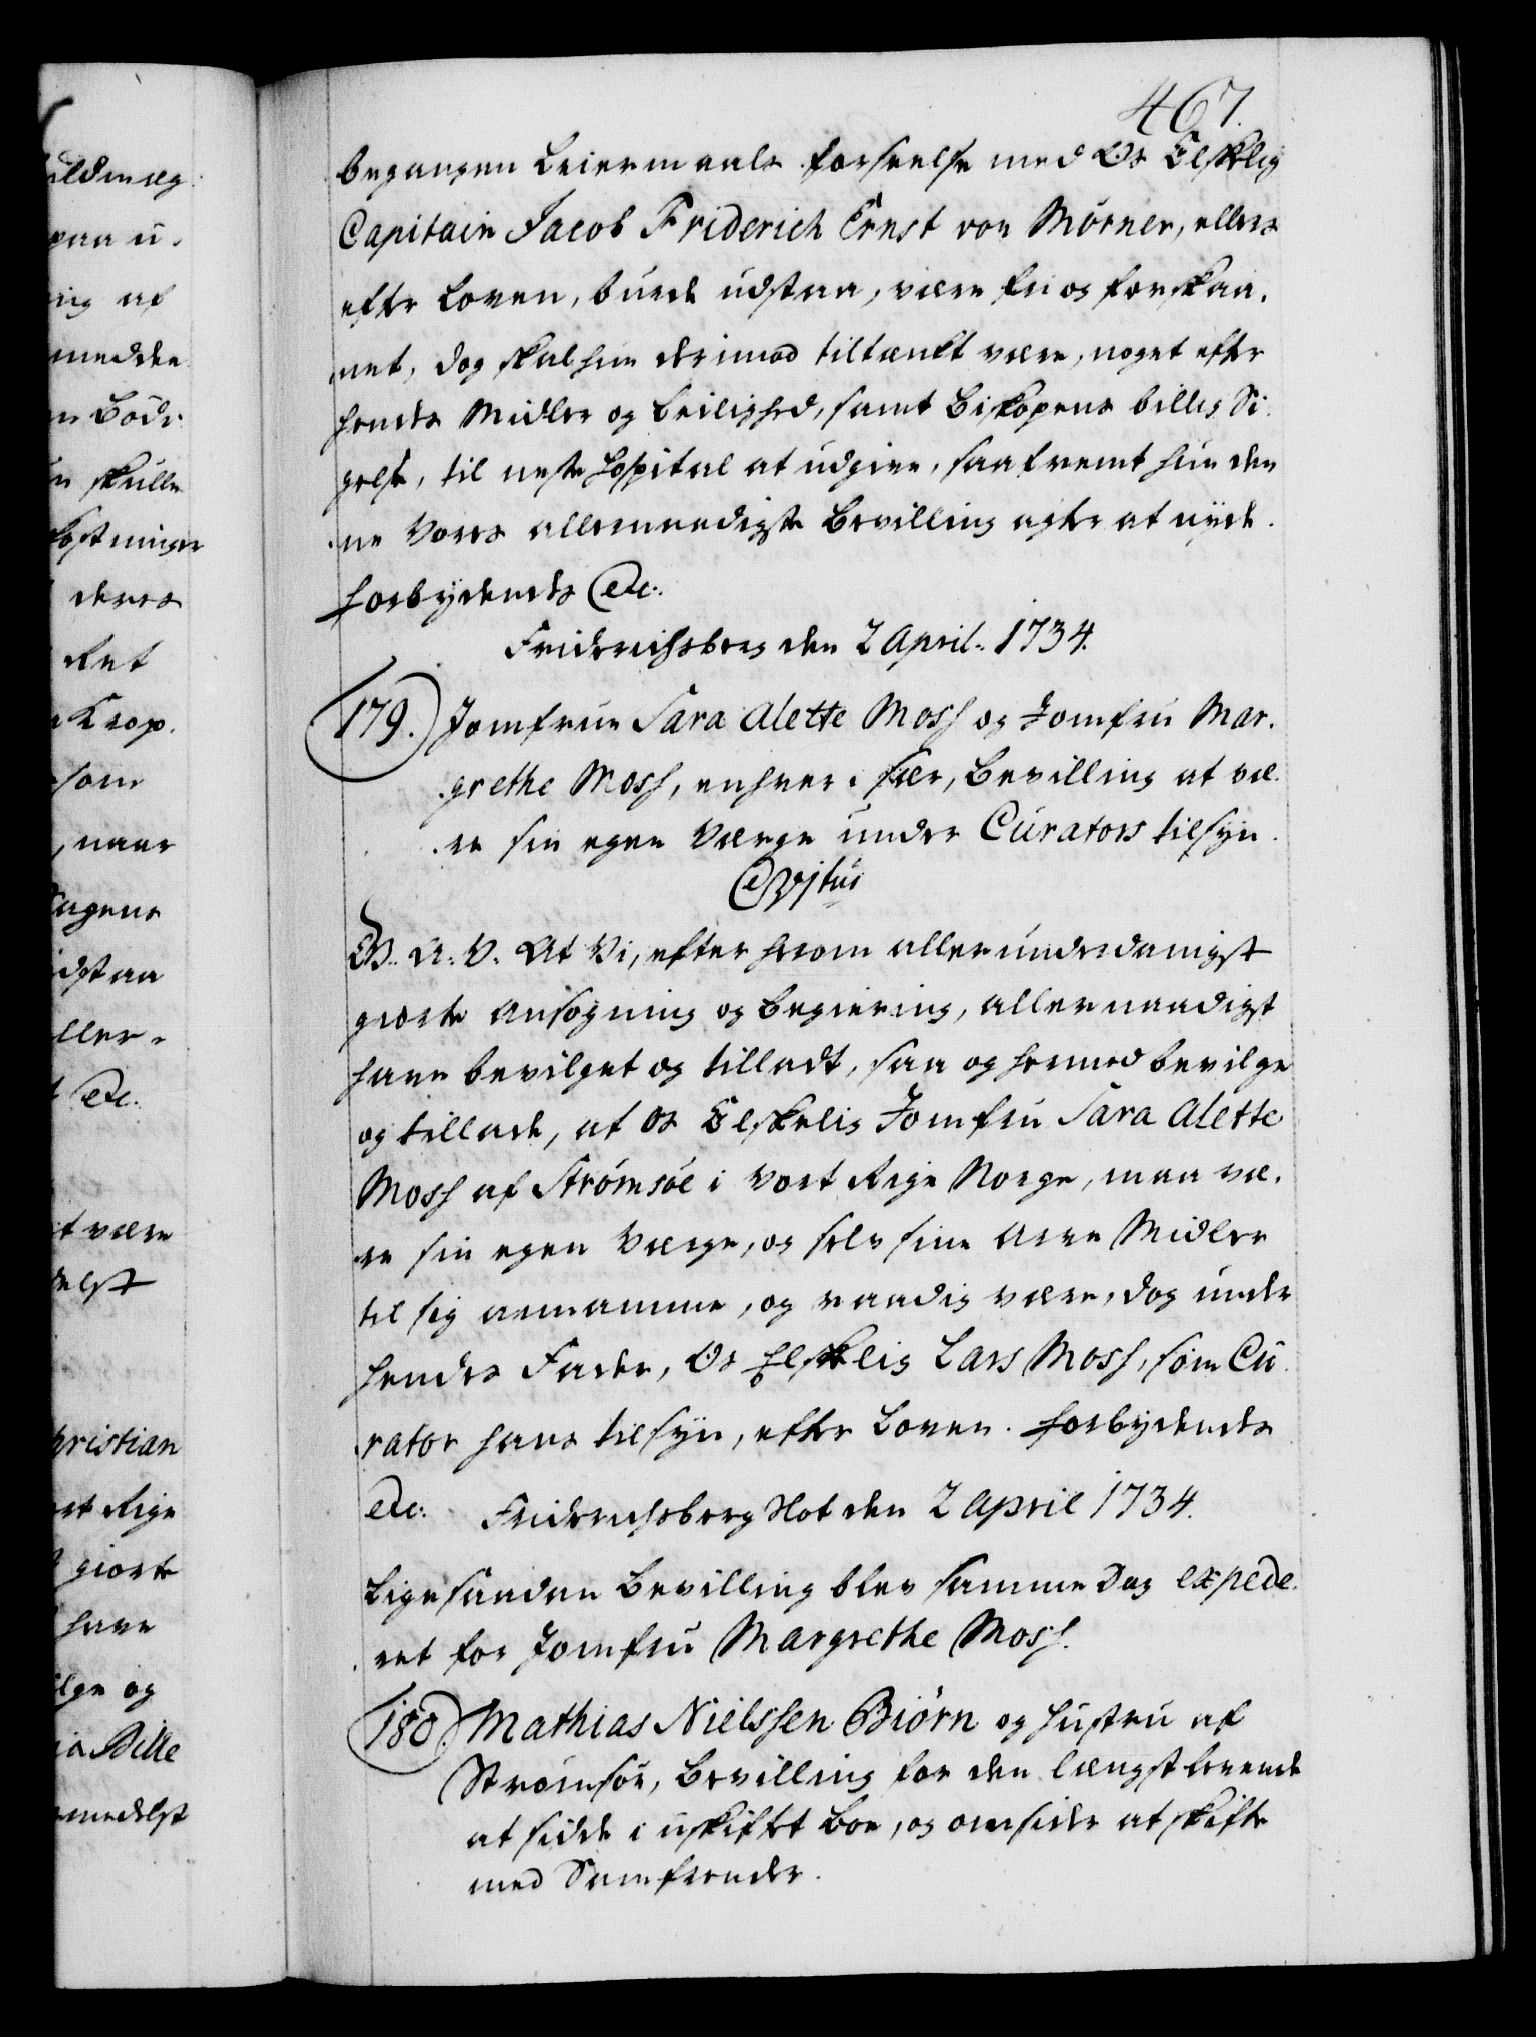 467.
begangen Leiermaals forseelse med Os Elskelig
Capitain Jacob Friderich Ernst von Mörner, ellers
efter Loven, burde udstaa, være fri og forskaa-
net, dog skal hun derimod tiltænkt være, noget efter
hendes Midler og Leilighed, samt Biskopens billig Si-
gelse, til neste Hospital at udgive, saafremt hun den-
ne Vores allernaadigste Bevilling agter at nyde.
Forbydendes etc.
Friderichsberg den 2 April. 1734.
179. Jomfrue Sara Alette Mosh og Jomfru Mar-
grethe Mosh, enhver i sær, Bevilling at væ-
re sin egen Værge under Curators tilsyn.
G. A. V. At Vi, efter herom allerunderdanigst
giorte Ansøgning og begiering, allernaadigst
have bevilget og tilladt, saa og hermed bevilge
og tillade, at Os Elskelig Jomfru Sara Alette
Mosh af Strömsöe i Vort Rige Norge, maa væ-
re sin egen Værge, og selv sine Arve Midler
til sig annamme, og raadig være, dog under
hendes Fader, Os Elskelig Lars Mosh, som Cu-
rator hans tilsyn, efter Loven. Forbydendes
etc. Friderichsberg Slot den 2 April 1734.
Ligesaadan Bevilling blev samme Dag expede-
ret for Jomfru Margrethe Mosh.
180. Mathias Nielssen Biörn og Hustru af
Strömsöe, Bevilling for den længst levende
at sidde i uskiftet Boe, og omsider at skifte
med Samfrender.